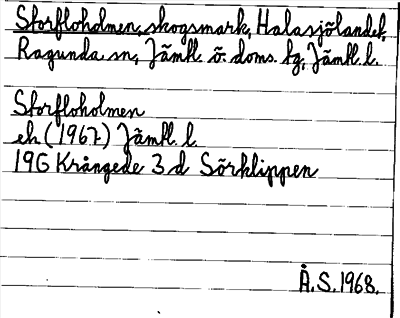 Storfloholmen, skogsmark, Halasjölandet,
Ragunda sn, Jämtl. ö. doms. fg, Jämtl. l.
Storfloholmen
ek (1967) Jämtl. l.
19G Krångede 3 d Sörklippen
Å.S. 1968.